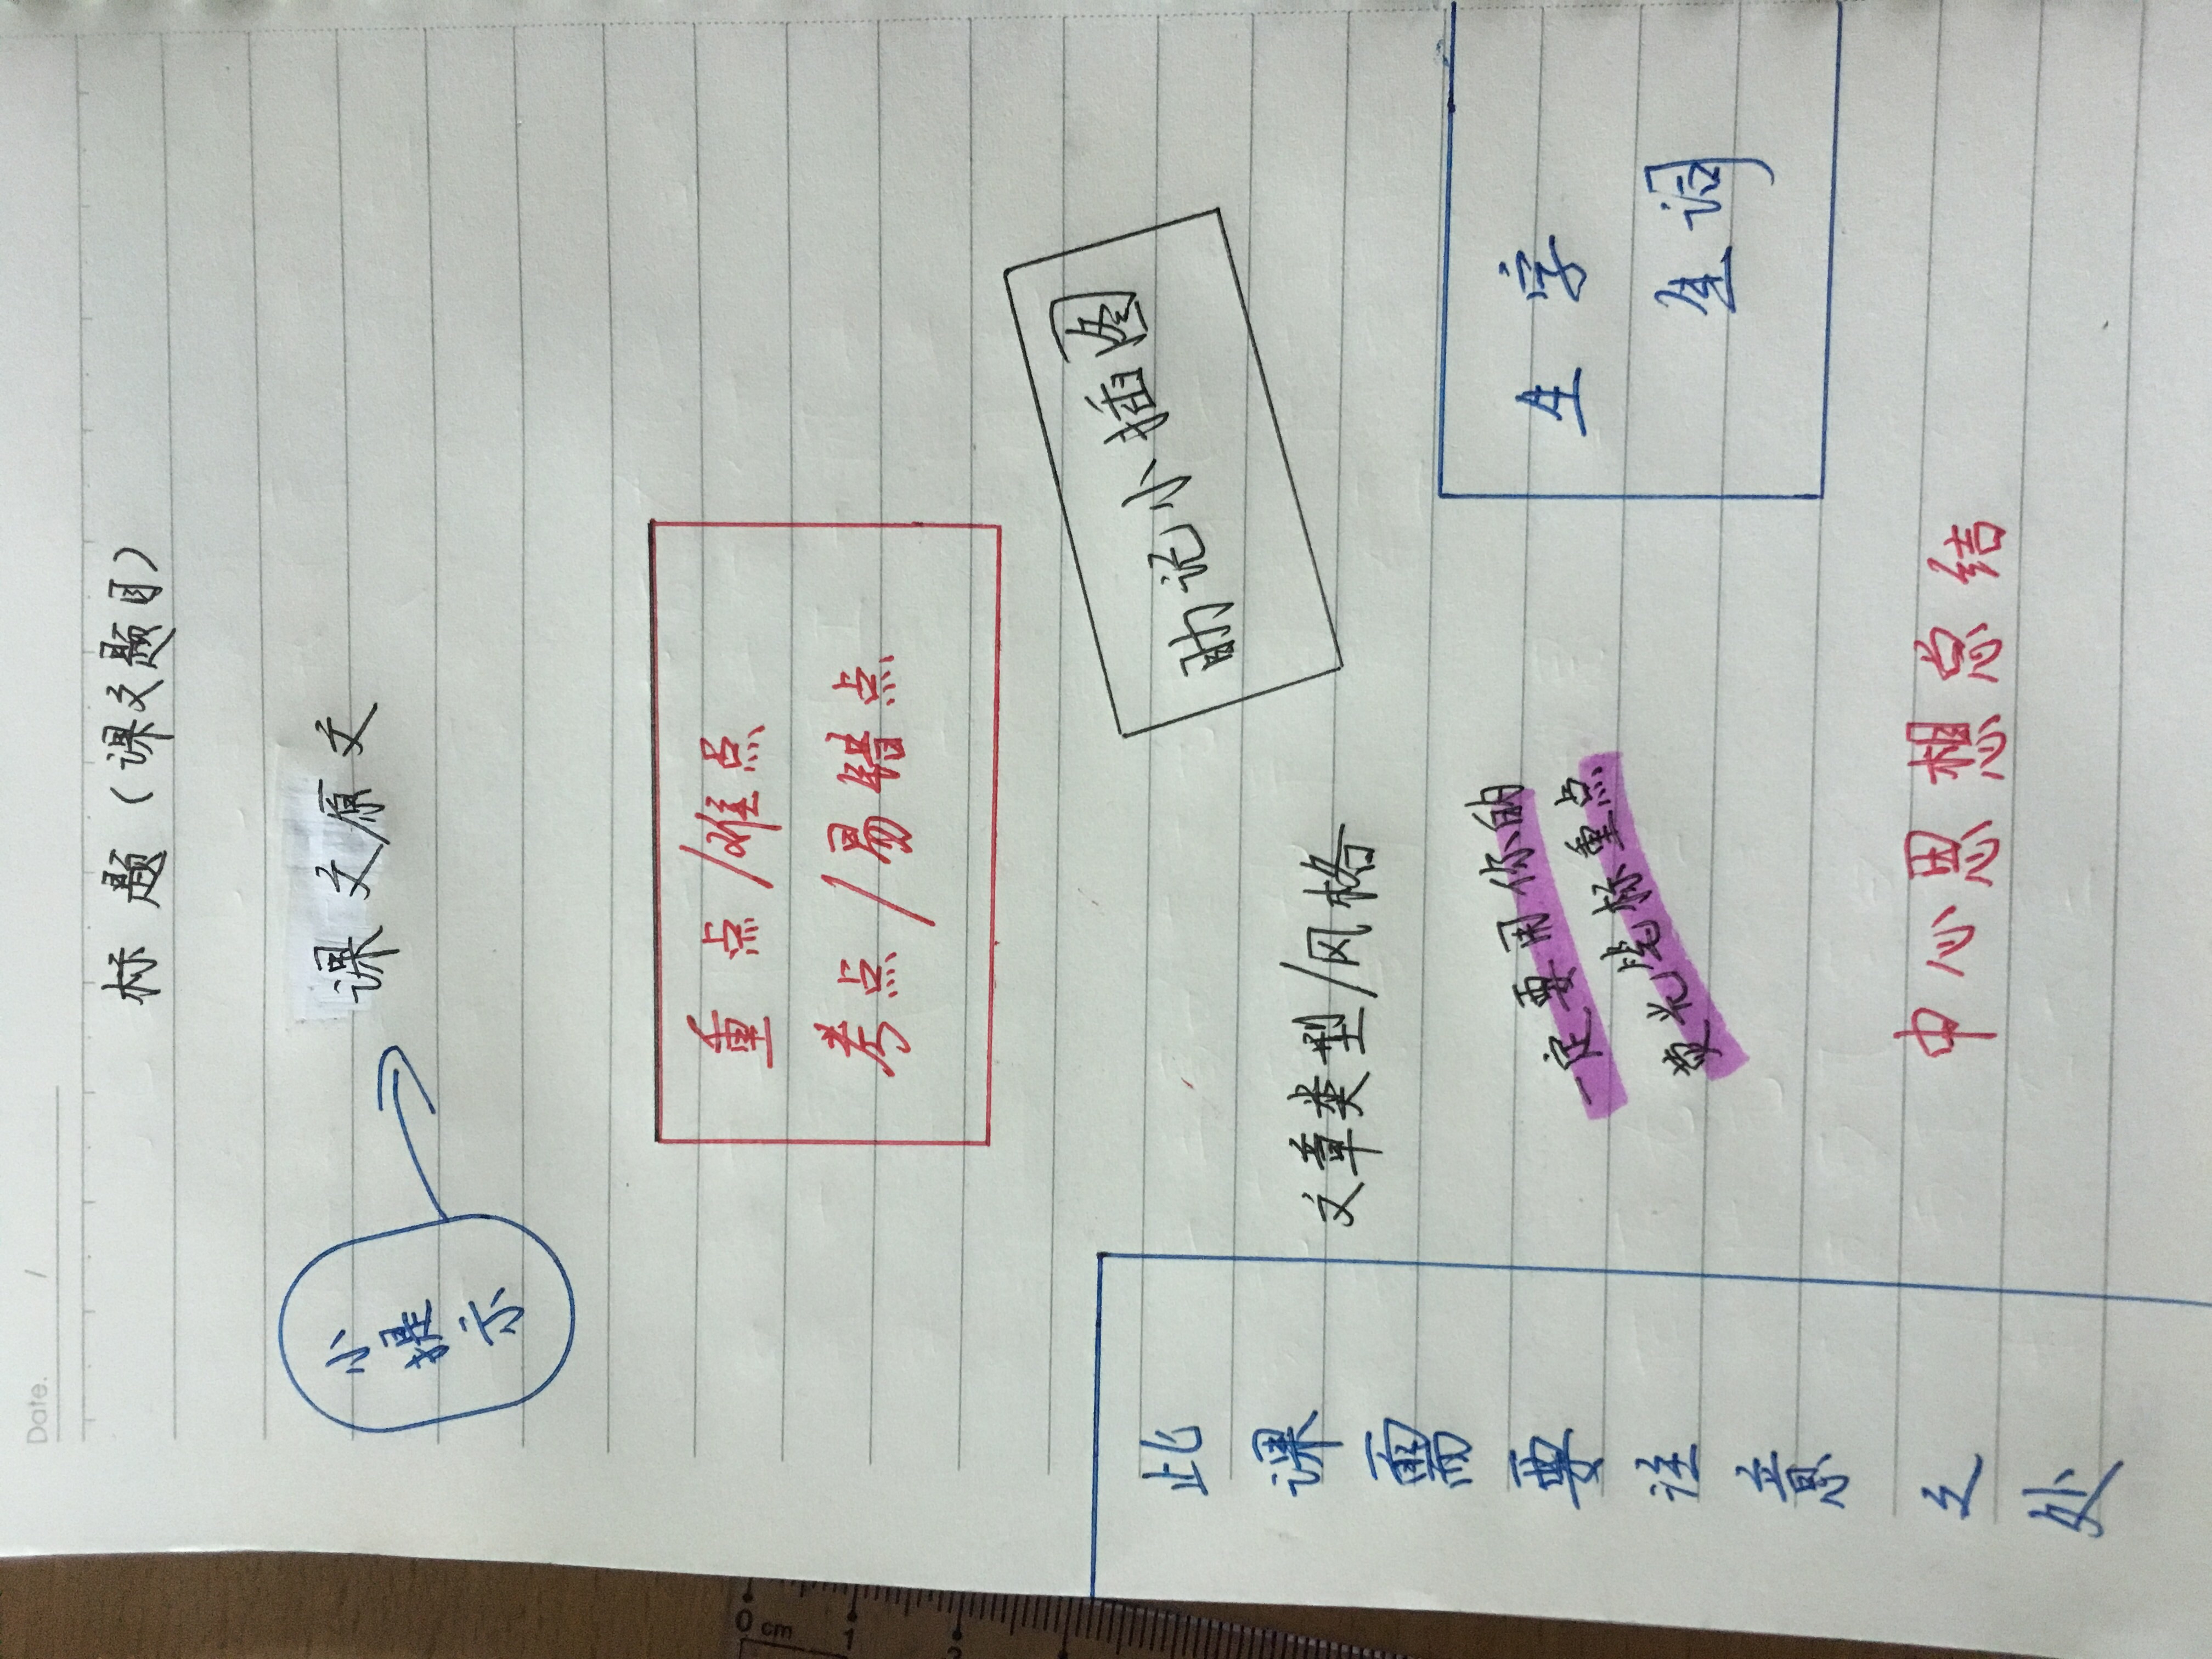 Date. /
标题(课文题目)
小提示
课文原文
重点/难点
考点/易错点
0 cm
1
2
助记小插图
此课需要注意之处
文章类型/风格
一定要用你的
荧光笔标重点
生字
生词
中心思想总结